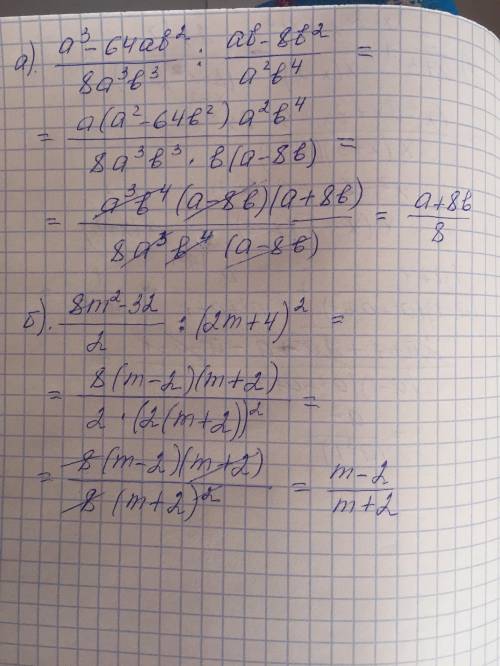 а). (a³ - 64ab²)/(8a³b³) : (ab - 8b²)/(a²b⁴) =
= (a(a² - 64b²) a²b⁴)/(8a³b³ · b(a - 8b)) =
= (a³b⁴(a - 8b)(a + 8b))/(8a³b⁴(a - 8b)) = (a + 8b)/8
б). (8m² - 32)/2 : (2m + 4)² =
= (8(m - 2)(m + 2))/(2 · (2(m + 2))²) =
= (8(m - 2)(m + 2))/(8(m + 2)²) = (m - 2)/(m + 2)